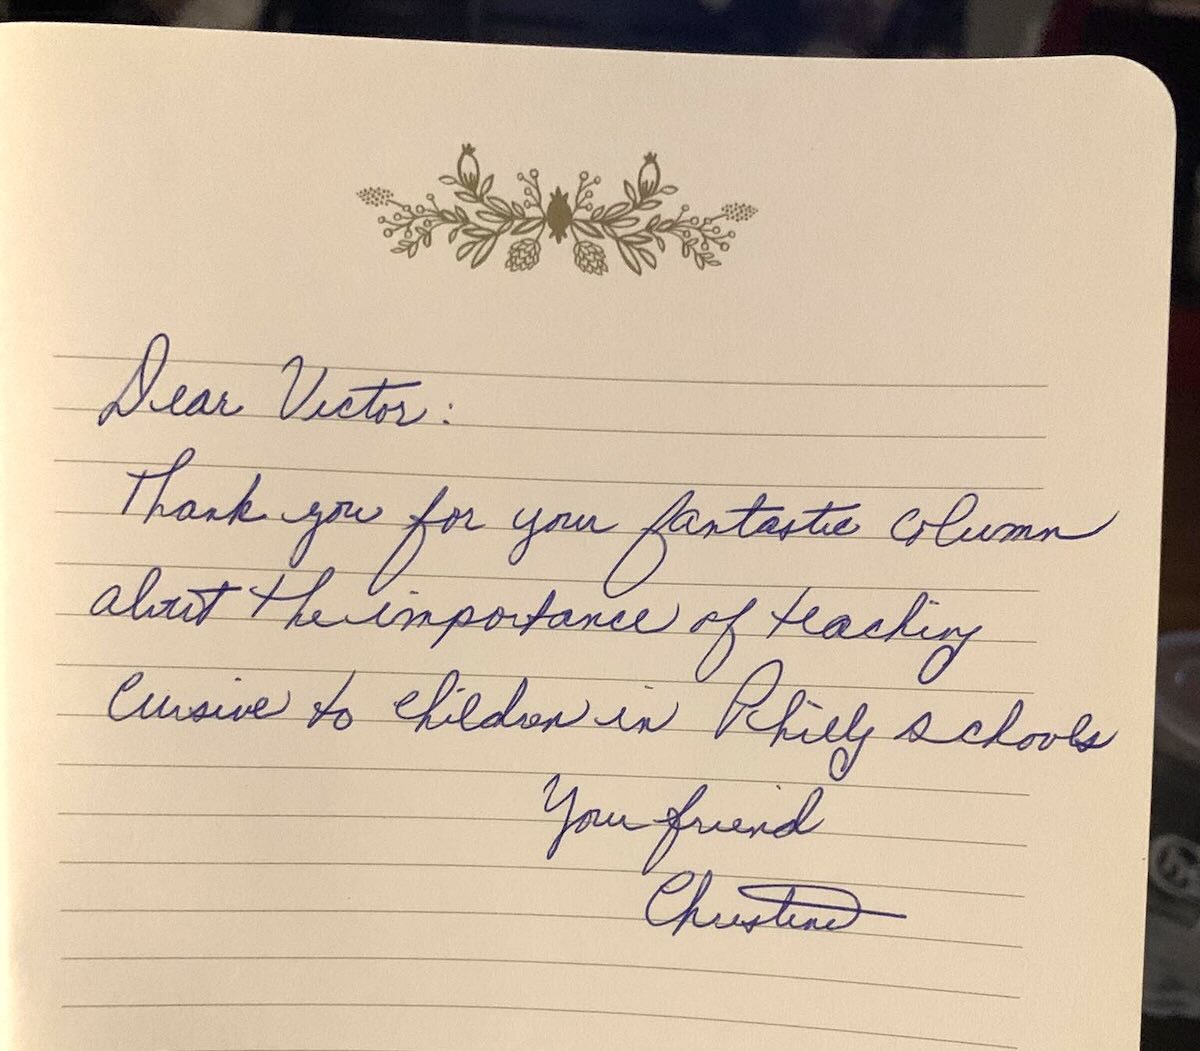 Dear Victor:
Thank you for your fantastic column
about the importance of teaching
cursive to children in Philly schools
Your friend
Christine